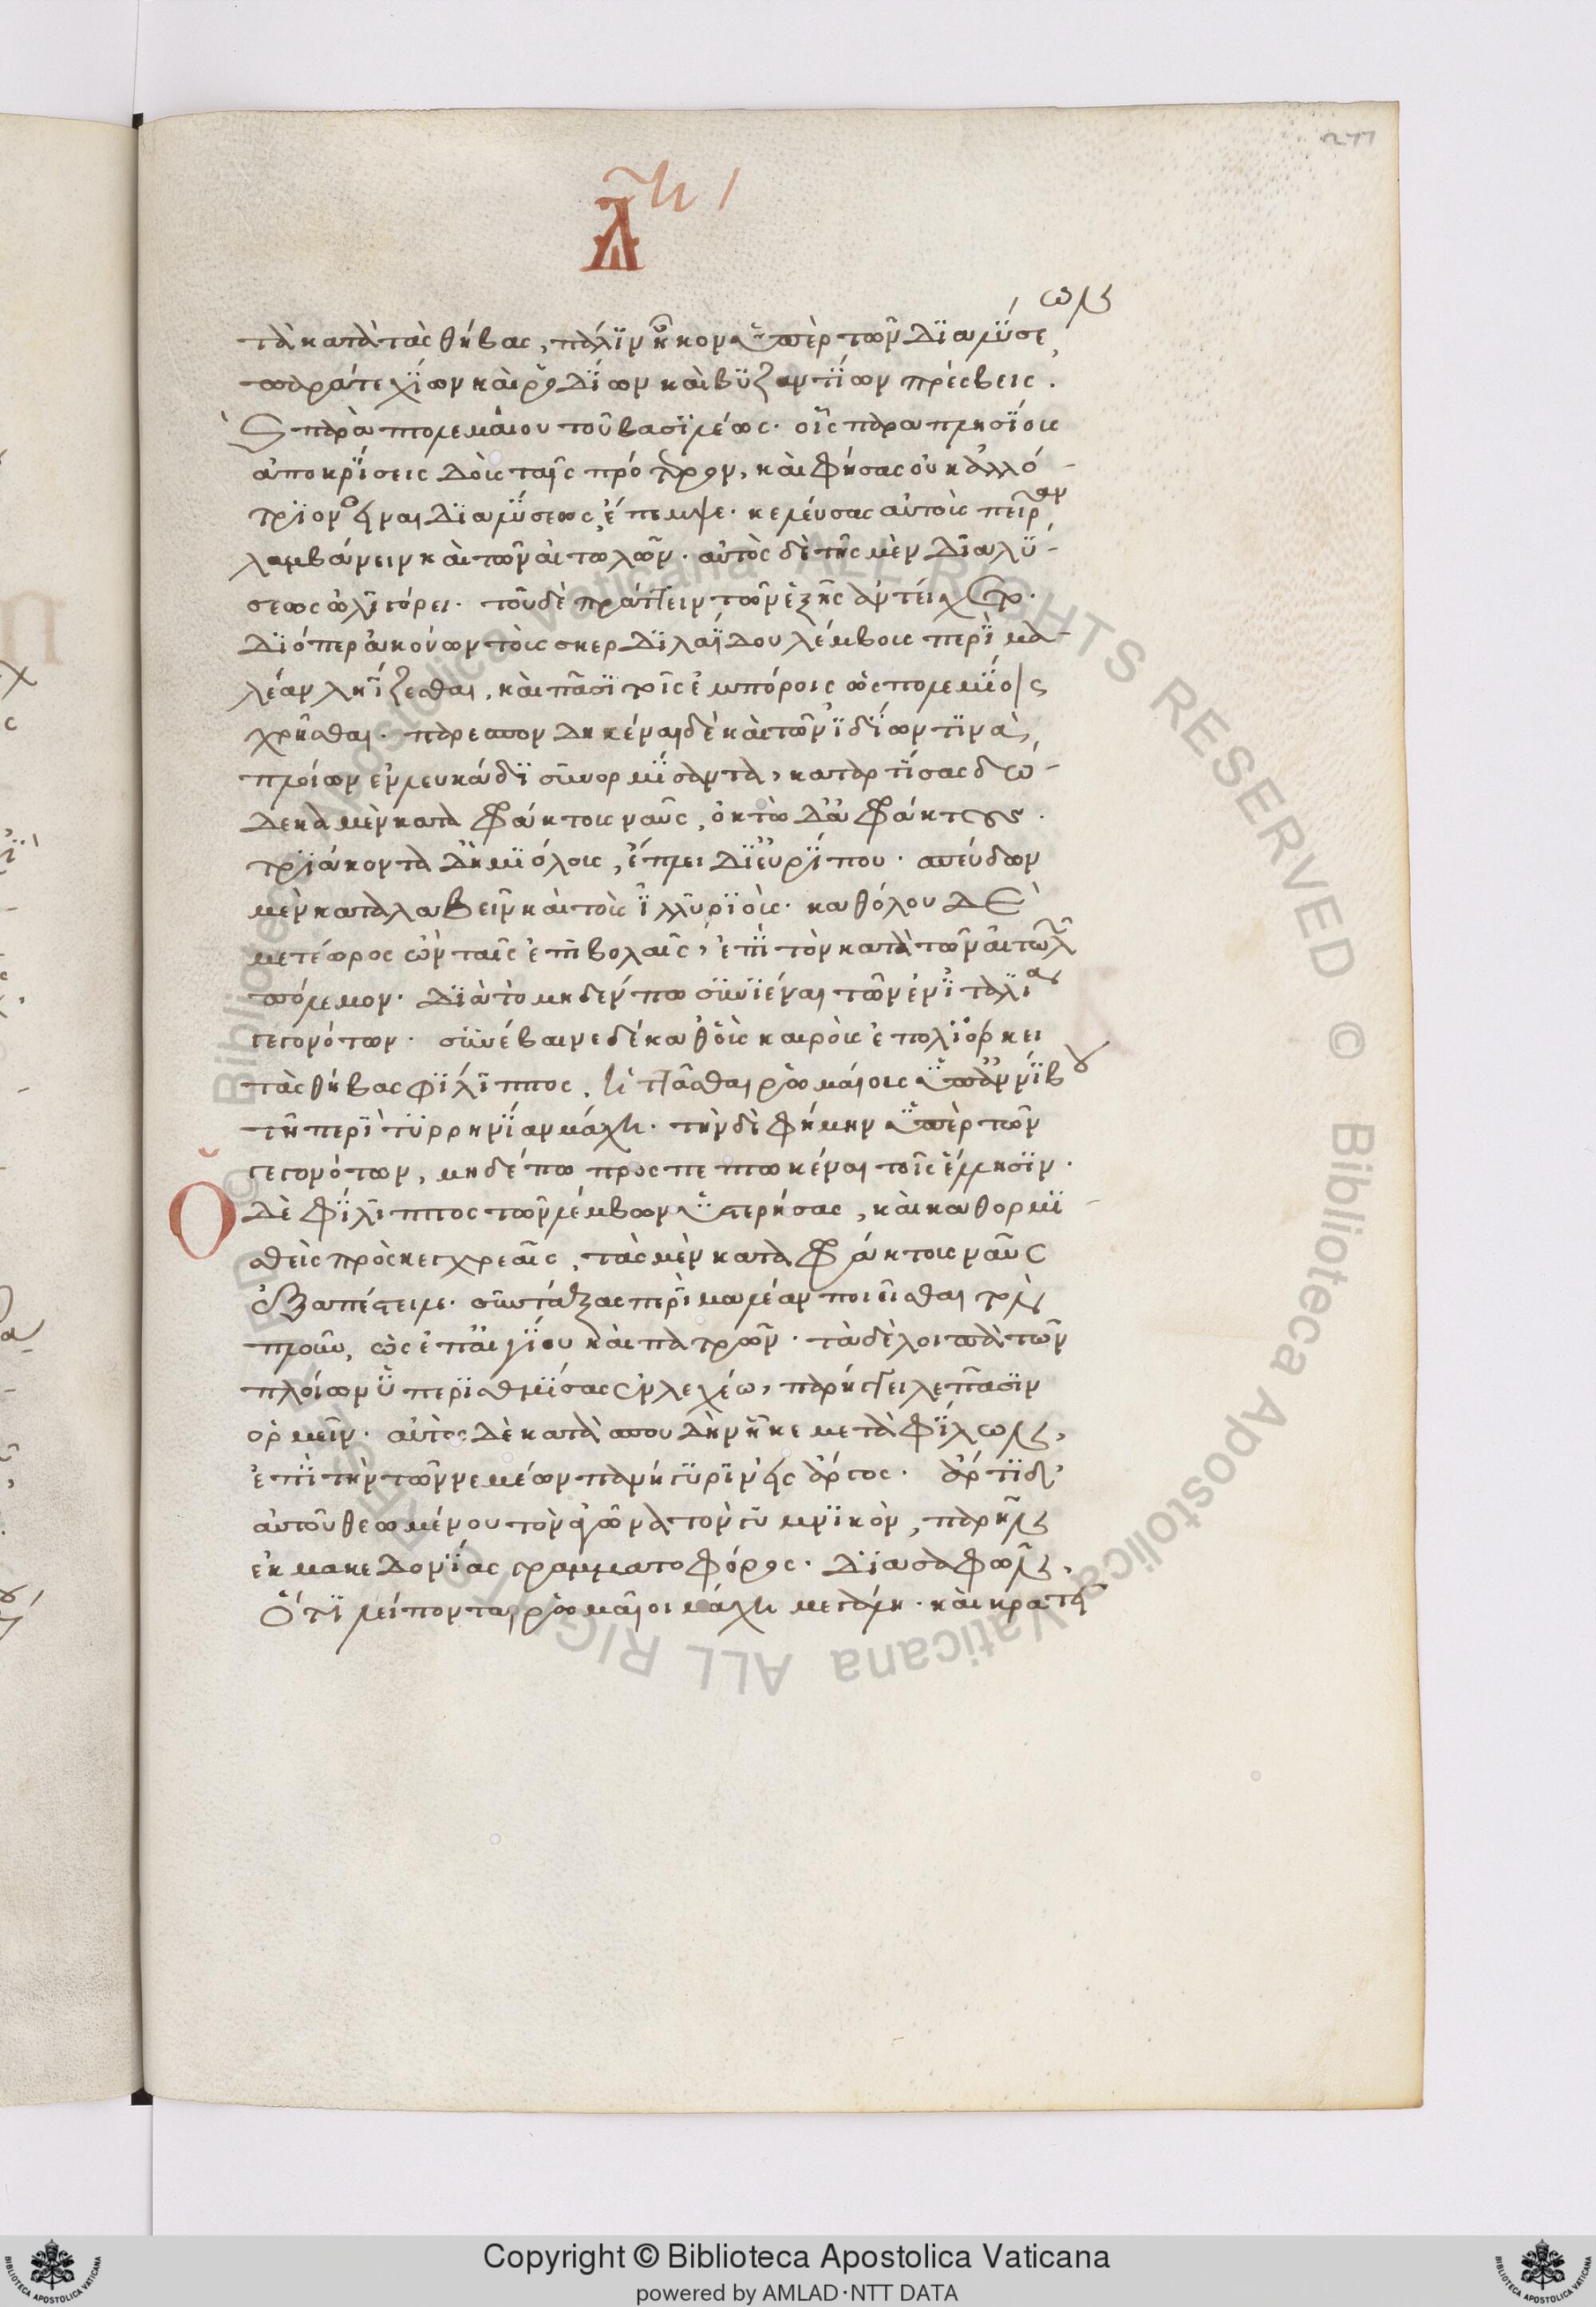 277
τὰ κατὰ τὰς θήβας, πάλιν ἧκον ὑπὲρ τῶν διαλύσεων
παρά τε χίων καὶ ῥοδίων καὶ βυζαντίων πρέσβεις.
καὶ παρὰ πτολεμαίου τοῦ βασιλέως. οἷς παραπλησίοις
ἀποκρίσεις δοὺς ταῖς πρότερον, καὶ φήσας οὐκ ἀλλό-
τριον εἶναι διαλύσεως, ἔπεμψε. κελεύσας αὐτοὺς πεῖραν
λαμβάνειν καὶ τῶν αἰτωλῶν. αὐτὸς δὲ τῆς μὲν διαλύ-
σεως ὠλιγόρει. τοῦ δὲ πράττειν τῶν ἑξῆς ἀντείχετο.
διόπερ ἀκούων τοὺς σκερδιλαΐδου λέμβους περὶ μα-
λέαν ληΐζεσθαι, καὶ πᾶσι τοῖς ἐμπόροις ὡς πολεμίοις
χρῆσθαι. παρεσπονδηκέναι δὲ καὶ τῶν ἰδίων τινὰ
πλοίων ἐν λευκάδι συνορμίσαντα, καταρτίσας δώ-
δεκα μὲν καταφράκτους ναῦς, ὀκτὼ δ' ἀφράκτους.
τριάκοντα δ' ἡμιόλους, ἔπλει δι' εὐρίπου. σπεύδων
μὲν καταλαβεῖν καὶ τοὺς ἰλλυριούς. καθόλου δὲ
μετέωρος ὢν ταῖς ἐπιβολαῖς, ἐπὶ τὸν κατὰ τῶν αἰτωλῶν
πόλεμον. διὰ τὸ μηδέν πω συνιέναι τῶν ἐν ἰταλίᾳ
γεγονότων. συνέβαινε δέ καθ' οὓς καιροὺς ἐπολιόρκει
τὰς θήβας φίλιππος, ἡττᾶσθαι ῥωμαίους ὑπ' ἀννίβου
τῇ περὶ τυρρηνίαν μάχῃ. τὴν δὲ φήμην ὑπὲρ τῶν
γεγονότων, μηδέπω προσπεπτωκέναι τοῖς ἕλλησιν.
Ὁ δὲ φίλιππος τῶν λέμβων ὑστερήσας, καὶ καθορμι-
σθεὶς πρὸς κεγχρεαῖς, τὰς μὲν καταφράκτους ναῦς
ἐξαπέστειλε. συντάξας περὶ μαλέαν ποιεῖσθαι τὸν
πλοῦν, ὡς ἐπ' αἰγίου καὶ πατρῶν. τὰ δὲ λοιπὰ τῶν
πλοίων ὑπερισθμίσας ἐν λεχέω, παρήγγειλε πᾶσιν
ὁρμεῖν. αὐτὸς δὲ κατὰ σπουδὴν ἧκε μετὰ φίλων,
ἐπὶ τὴν τῶν νεμέων πανήγυριν εἰς ἄργος. ἄρτι δ'
αὐτοῦ θεωμένου τὸν ἀγῶνα τὸν γυμνικὸν, παρῆν
ἐκ μακεδονίας γραμματοφόρος. διασαφῶν,
ὅτι λείπονται ῥωμαῖοι μάχῃ μεγάλῃ. καὶ κρατεῖ